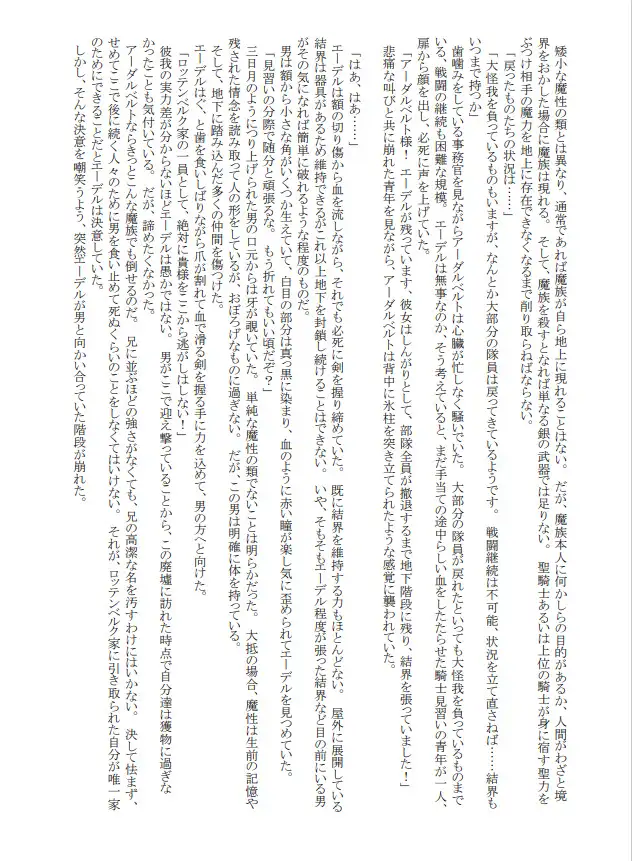 矮小な魔性の類とは異なり、通常であれば魔族が自ら地上に現れることはない。だが、魔族本人に何かしらの目的があるか、人間がわざと境
界をおかした場合に魔族は現れる。そして、魔族を殺すとなれば単なる銀の武器では足りない。聖騎士あるいは上位の騎士が身に宿す聖力を
ぶつけ相手の魔力を地上に存在できなくなるまで削り取らねばならない。
「戻ったものたちの状況は……」
「大怪我を負っているものもいますが、なんとか大部分の隊員は戻ってきているようです。戦闘継続は不可能、状況を立て直さねば……結界も
いつまで持つか」
歯噛みをしている事務官を見ながらアーダルベルトは心臓が忙しなく騒いでいた。大部分の隊員が戻れたといっても大怪我を負っているものまで
いる、戦闘の継続も困難な規模。エーデルは無事なのか、そう考えていると、まだ手当ての途中らしい血をしたたらせた騎士見習いの青年が一人、
扉から顔を出し、必死に声を上げていた。
「アーダルベルト様！エーデルが残っています、彼女はしんがりとして、部隊全員が撤退するまで地下階段に残り、結界を張っていました！」
悲痛な叫びと共に崩れた青年を見ながら、アーダルベルトは背中に氷柱を突き立てられたような感覚に襲われていた。
「はあ、はあ……」
エーデルは額の切り傷から血を流しながら、それでも必死に剣を握り締めていた。既に結界を維持する力もほとんどない。屋外に展開している
結界は器具があるため維持できるがこれ以上地下を封鎖し続けることはできない。いや、そもそもエーデル程度が張った結界など目の前にいる男
がその気になれば簡単に破れるような程度のものだ。
男は額から小さな角がいくつか生えていて、白目の部分は真っ黒に染まり、血のように赤い瞳が楽し気に歪められてエーデルを見つめていた。
「見習いの分際で随分と頑張るな。もう折れてもいい頃だぞ？」
三日月のようにつり上げられた男の口元からは牙が覗いていた。単純な魔性の類でないことは明らかだった。大抵の場合、魔性は生前の記憶や
残された情念を読み取って人の形をしているが、おぼろげなものに過ぎない。だが、この男は明確に体を持っている。
そして、地下に踏み込んだ多くの仲間を傷つけた。
エーデルはぐ、と歯を食いしばりながら爪が割れて血で滑る剣を握る手に力を込めて、男の方へと向けた。
「ロッテンベルク家の一員として、絶対に貴様をここから逃がしはしない！」
彼我の実力差が分からないほどエーデルは愚かではない。男がここで迎え撃っていることから、この廃墟に訪れた時点で自分達は獲物に過ぎな
かったことも気付いている。だが、諦めたくなかった。
アーダルベルトならきっとこんな魔族でも倒せるのだ。兄に並ぶほどの強さがなくても、兄の高潔な名を汚すわけにはいかない。決して怯まず、
せめてここで後に続く人々のために男を食い止めて死ぬくらいのことをしなくてはいけない。それが、ロッテンベルク家に引き取られた自分が唯一家
のためにできることだとエーデルは決意していた。
しかし、そんな決意を嘲笑うよう、突然エーデルが男と向かい合っていた階段が崩れた。